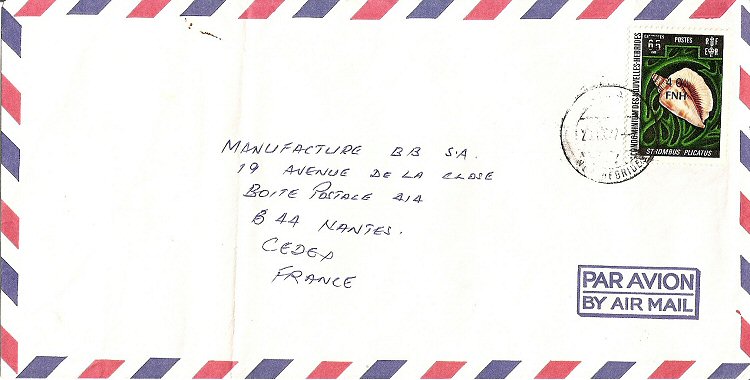 MANUFACTURE BB S.A.
19 AVENUE DE LA CLOSE
BOITE POSTALE 414
B 44 NANTES.
CEDEX
FRANCE
65
POSTES
RF
ER
CONDOMINIUM DES NOUVELLES-HEBRIDES
40
FNH
STROMBUS PLICATUS
HEBRIDES
PAR AVION
BY AIR MAIL